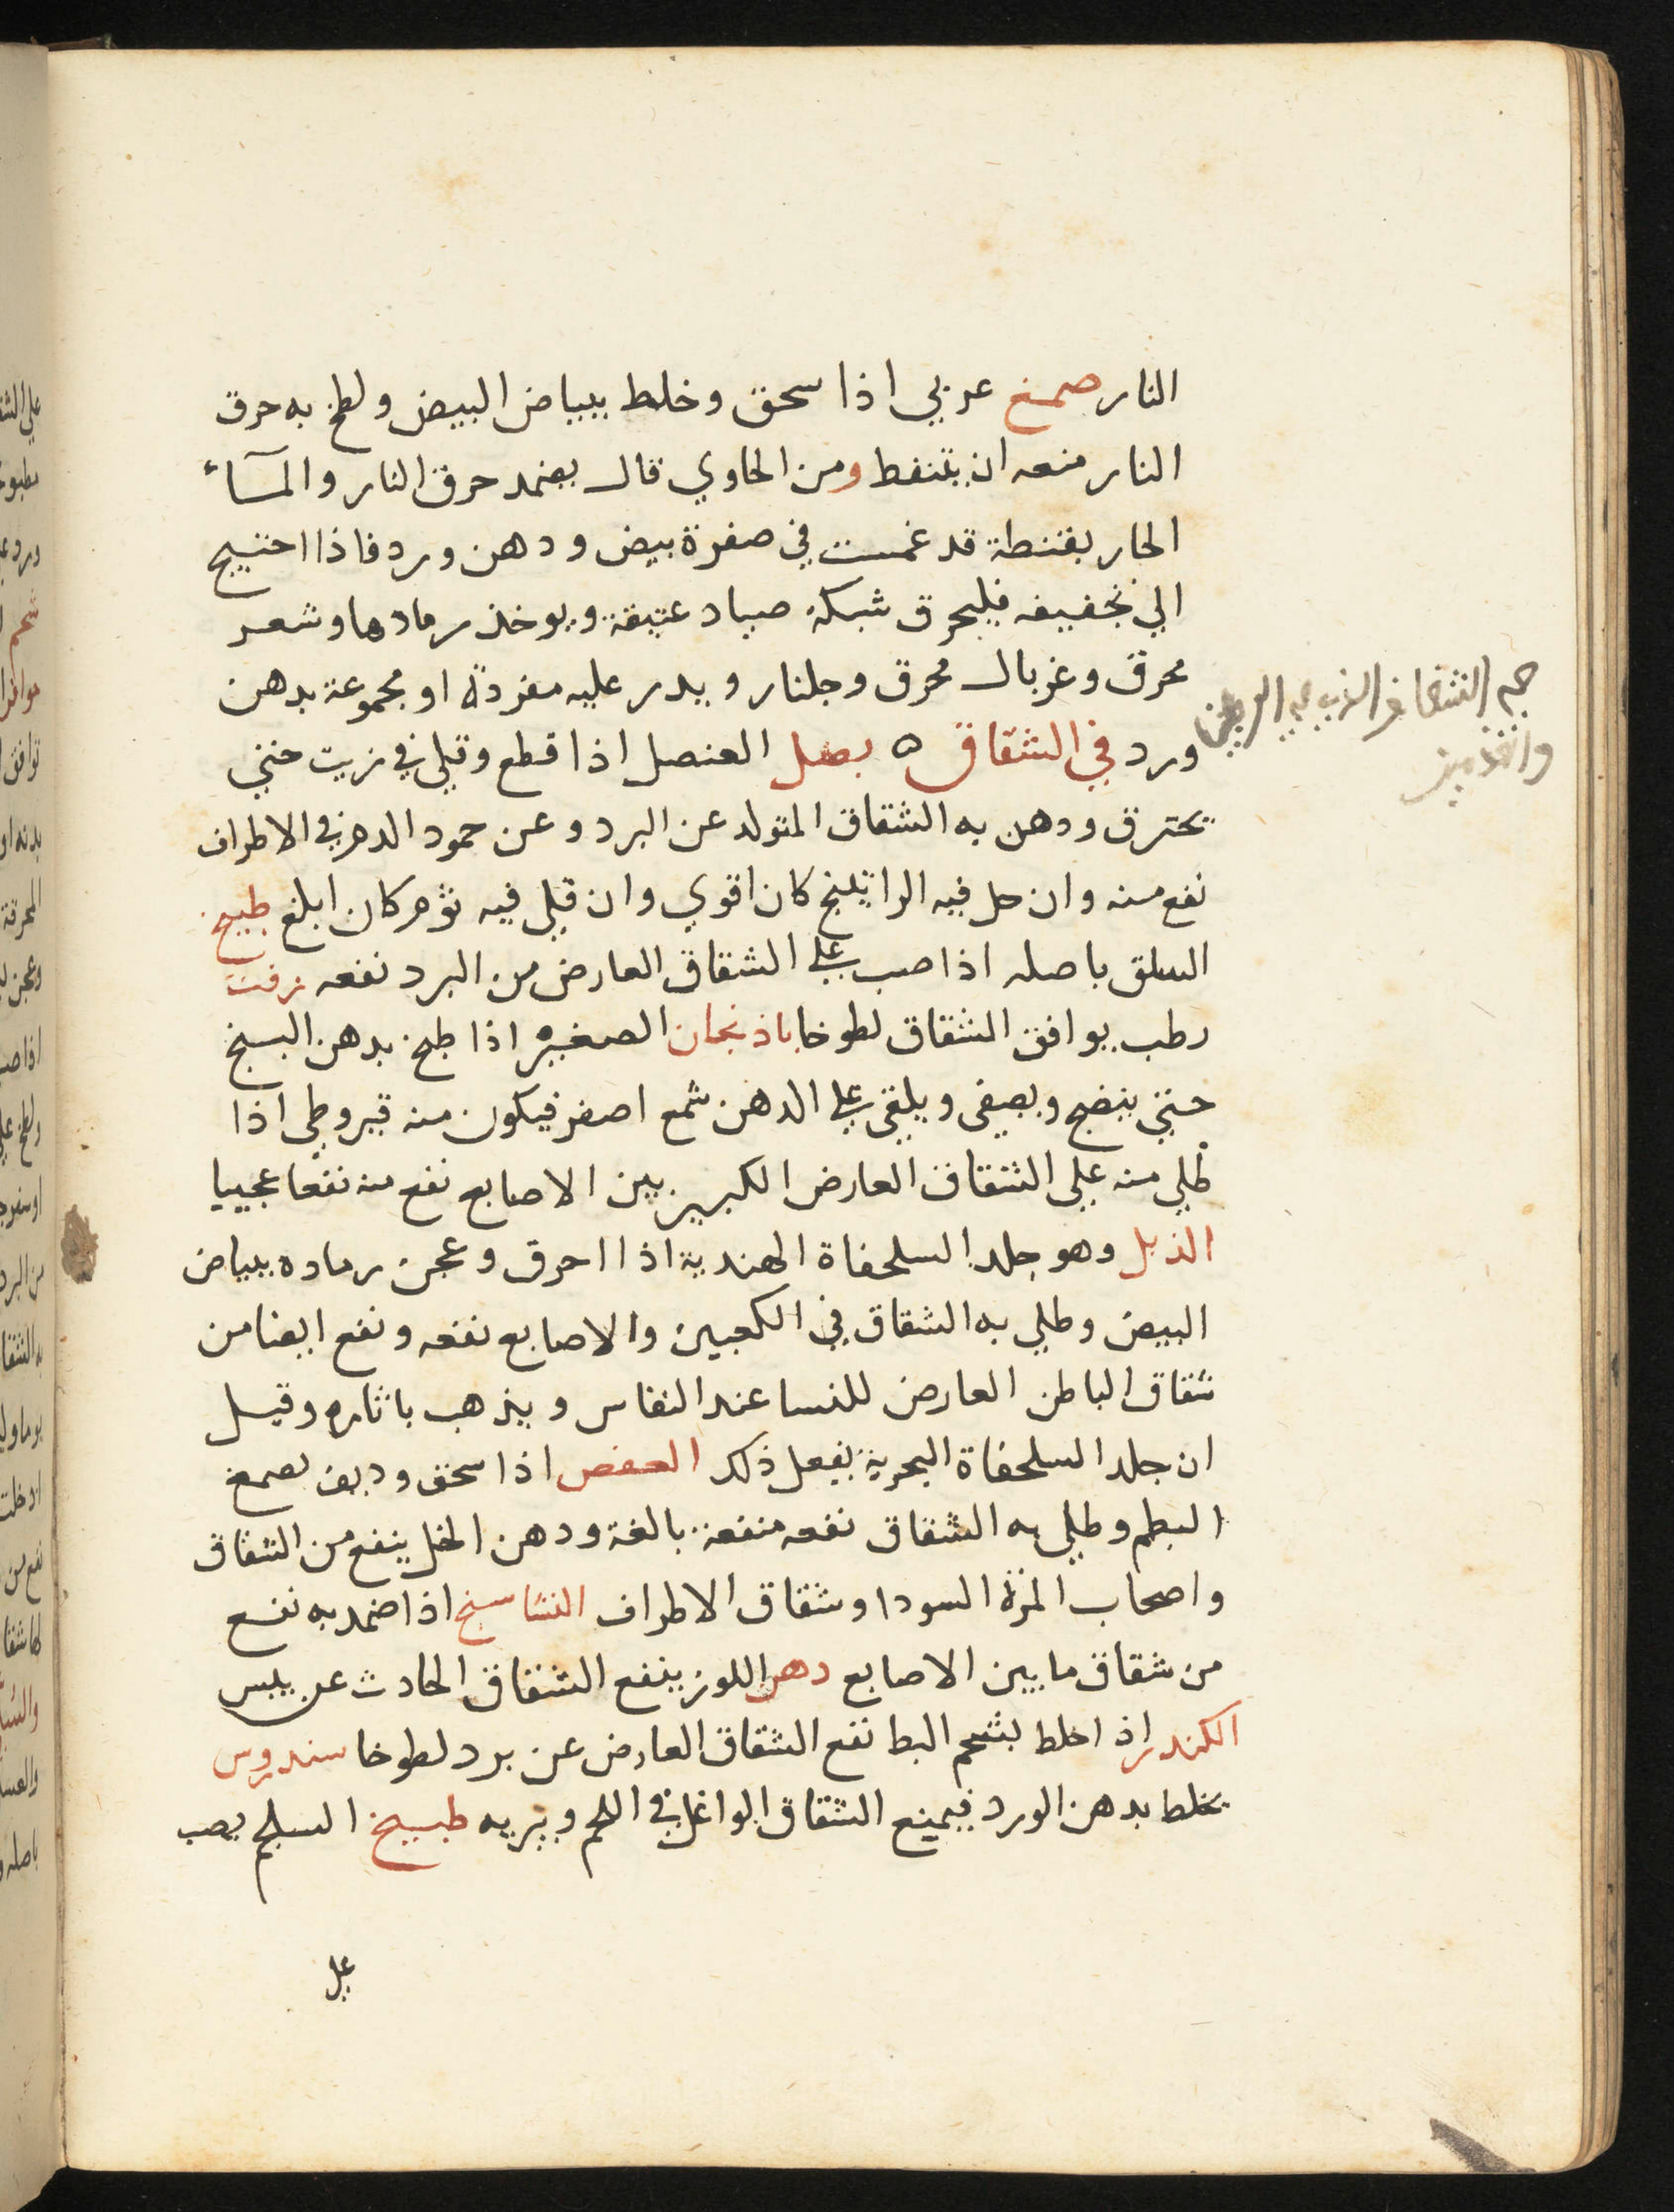 النار صمغ عربي اذا سحق وخلط ببياض البيض ولطخ به حرق
النار منعه ان يتنفط ومن الحاوي قال يضمد حرق النار والمآء
الحار بقنطة قد غمست في صفرة بيض ودهن ورد فاذا احتيج
الي تجفيفه فليحرق شبكة صياد عتيقة ويوخذ رمادها وشعر
محرق وغربال محرق وجلنار ويدر عليه مفردة او مجموعة بدهن
ورد في الشقاق ه بصل العنصل اذا قطع وقلي في زيت حتي
يحترق ودهن به الشقاق المتولد عن البرد وعن جمود الدم في الاطراف
نفع منه وان حل فيه الراتينج كان اقوي وان قلي فيه ثوم كان ابلغ طبيخ
السلق باصله اذا صب علي الشقاق العارض من البرد نفعه زفت
رطب يوافق الشقاق لطوخا باذنجان الصغير اذا طبخ بدهن البسنج
حتي ينضج ويصفى ويلقى علي الدهن شمع اصفر فيكون منه قيروطي اذا
طلي منه علي الشقاق العارض الكبير بين الاصابع نفع منه نفعا عجيبا
الذبل وهو جلد السلحفاة الهندية اذا احرق وعجن رماده ببياض
البيض وطلي به الشقاق في الكعبين والاصابع نفعه ونفع ايضا من
شقاق الباطن العارض للنسا عند النفاس ويذهب باثاره وقيل
ان جلد السلحفاة البحرية يفعل ذلك العفص اذا سحق وديف بصمغ
البطم وطلي به الشقاق نفعه منفعة بالغة ودهن الخل ينفع من الشقاق
واصحاب المرة السودا وشقاق الاطراف النشاسنج اذا ضمد به نفع
من شقاق ما بين الاصابع دهن اللوز ينفع الشقاق الحادث عن يبس
الكندر اذا خلط بشحم البط نفع الشقاق العارض عن برد لطوخا سندروس
يخلط بدهن الورد فيمنع الشقاق الواغل في اللحم ويبريه طبيخ السلجم يصب
علي